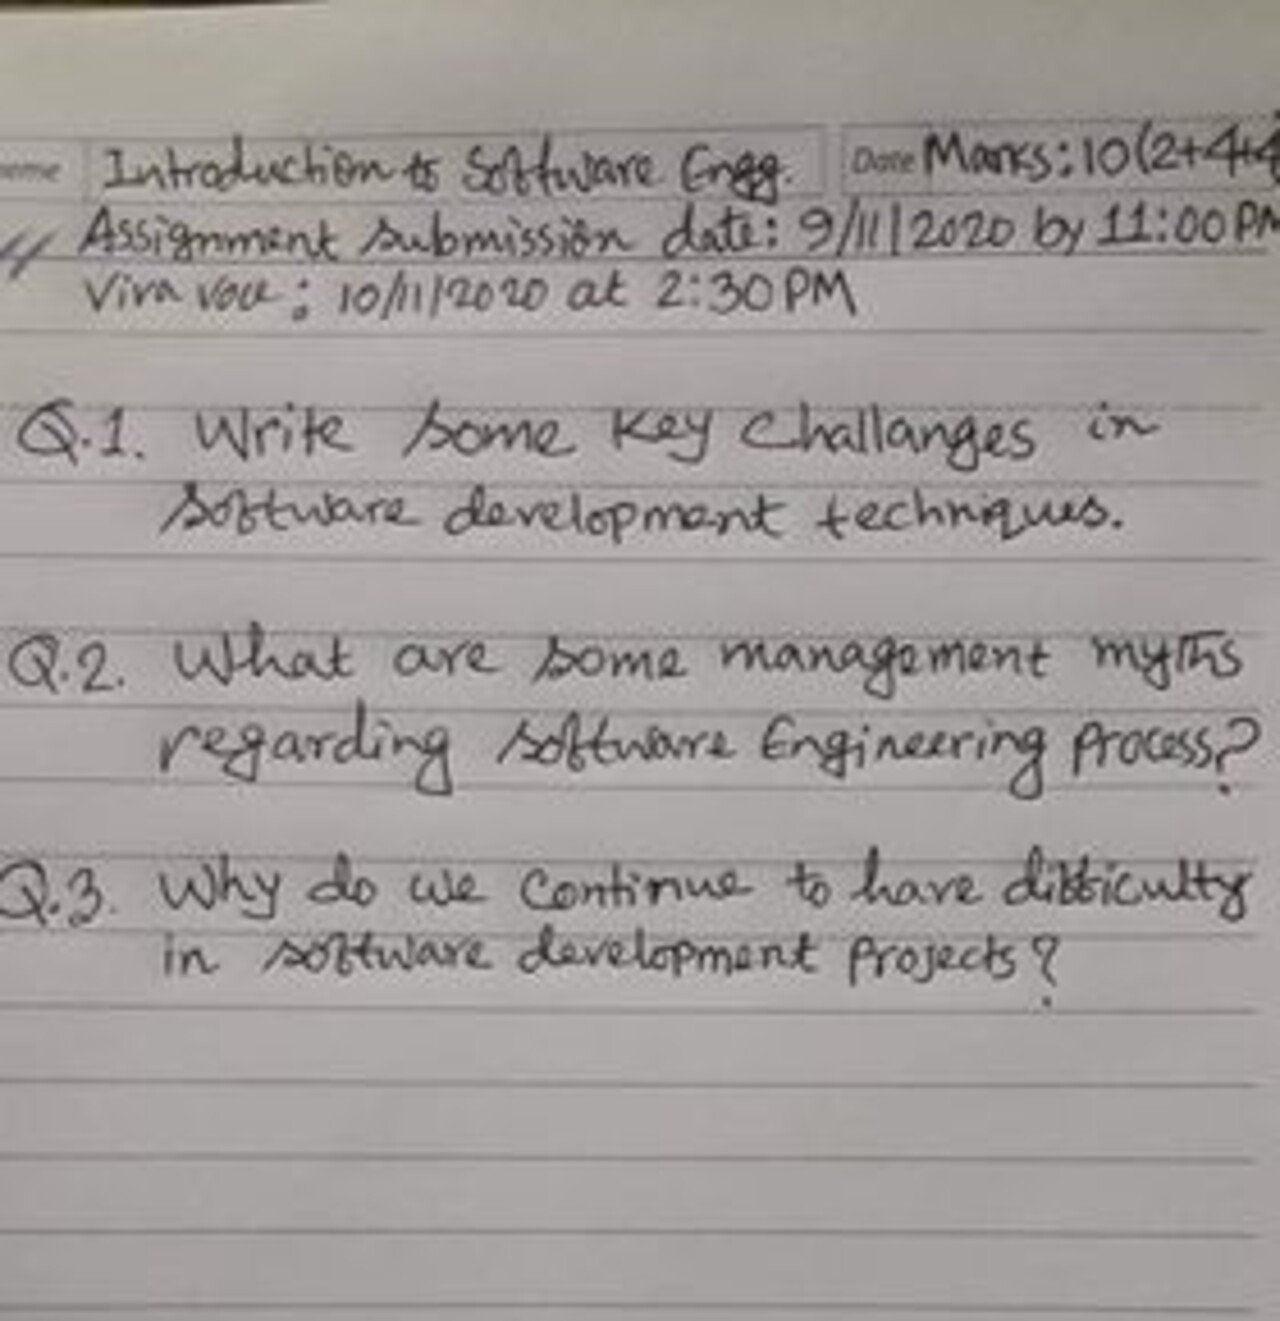 Introduction to Software Engg. Date Marks: 10(2+4+4
Assignment submission date: 9/11/2020 by 11:00 PM
Viva voce: 10/11/2020 at 2:30 PM
Q.1. Write some key challanges in
software development techniques.
Q.2. What are some management myths
regarding software Engineering Process?
Q.3. Why do we continue to have difficulty
in software development projects?